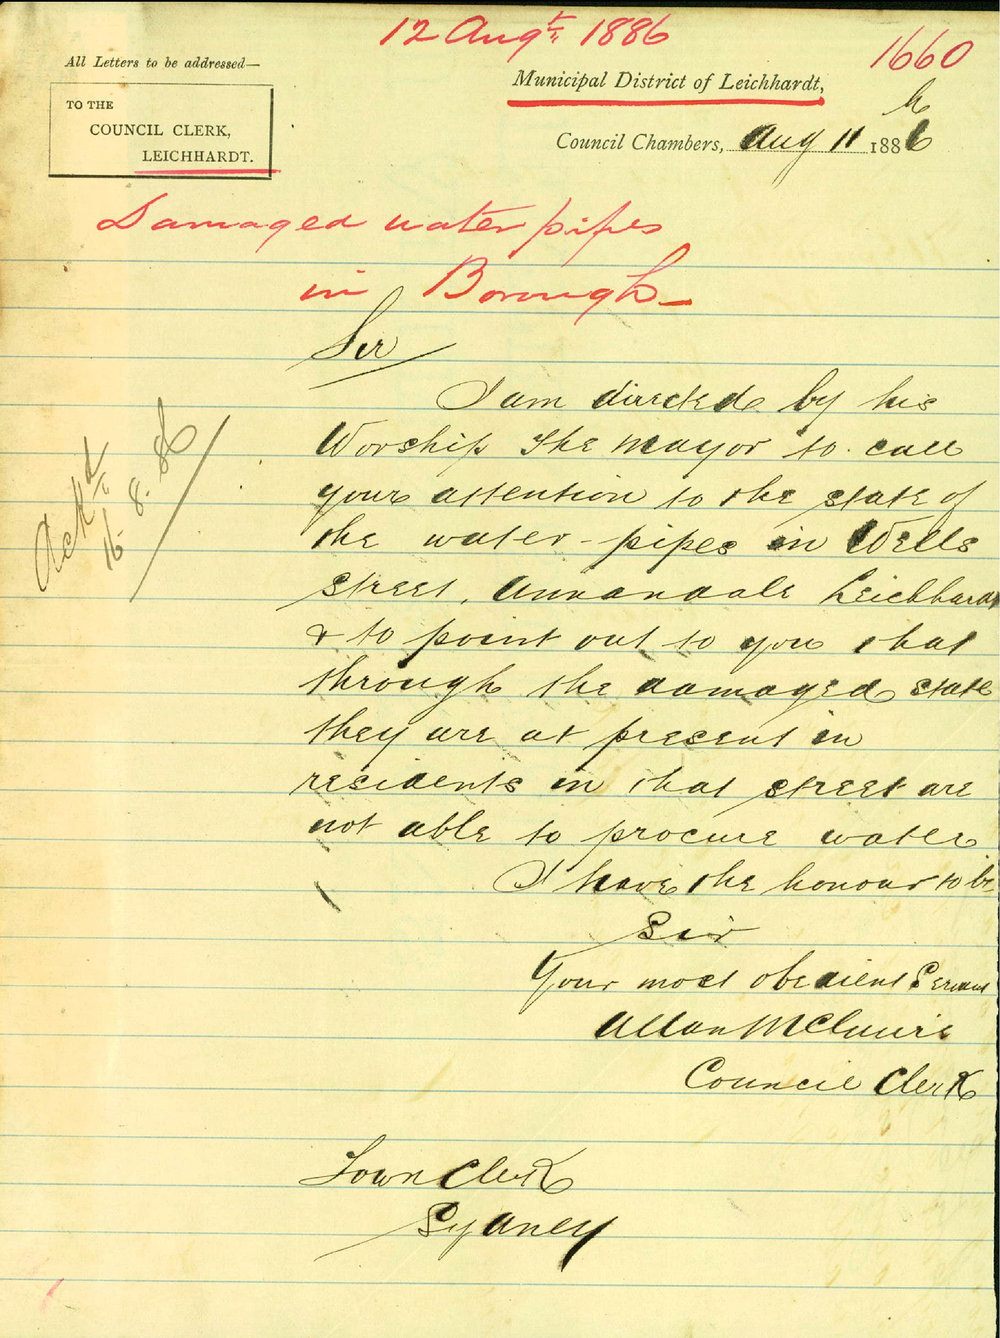 12 Augt 1886
1660
All Letters to be addressed—
TO THE
COUNCIL CLERK,
LEICHHARDT.
Municipal District of Leichhardt,
Council Chambers, Aug 11 1886
6
Damaged water pipes
in Borough
Sir
I am directed by his
Worship the Mayor to call
your attention to the state of
the water-pipes in Wells
street, Annandale Leichhardt
& to point out to you that
through the damaged state
they are at present in
residents in that street are
not able to procure water
I have the honour to be
Sir
Your most obedient Servant
Allan
Council Clerk
Ackd
16.8.86
Town Clerk
Sydney